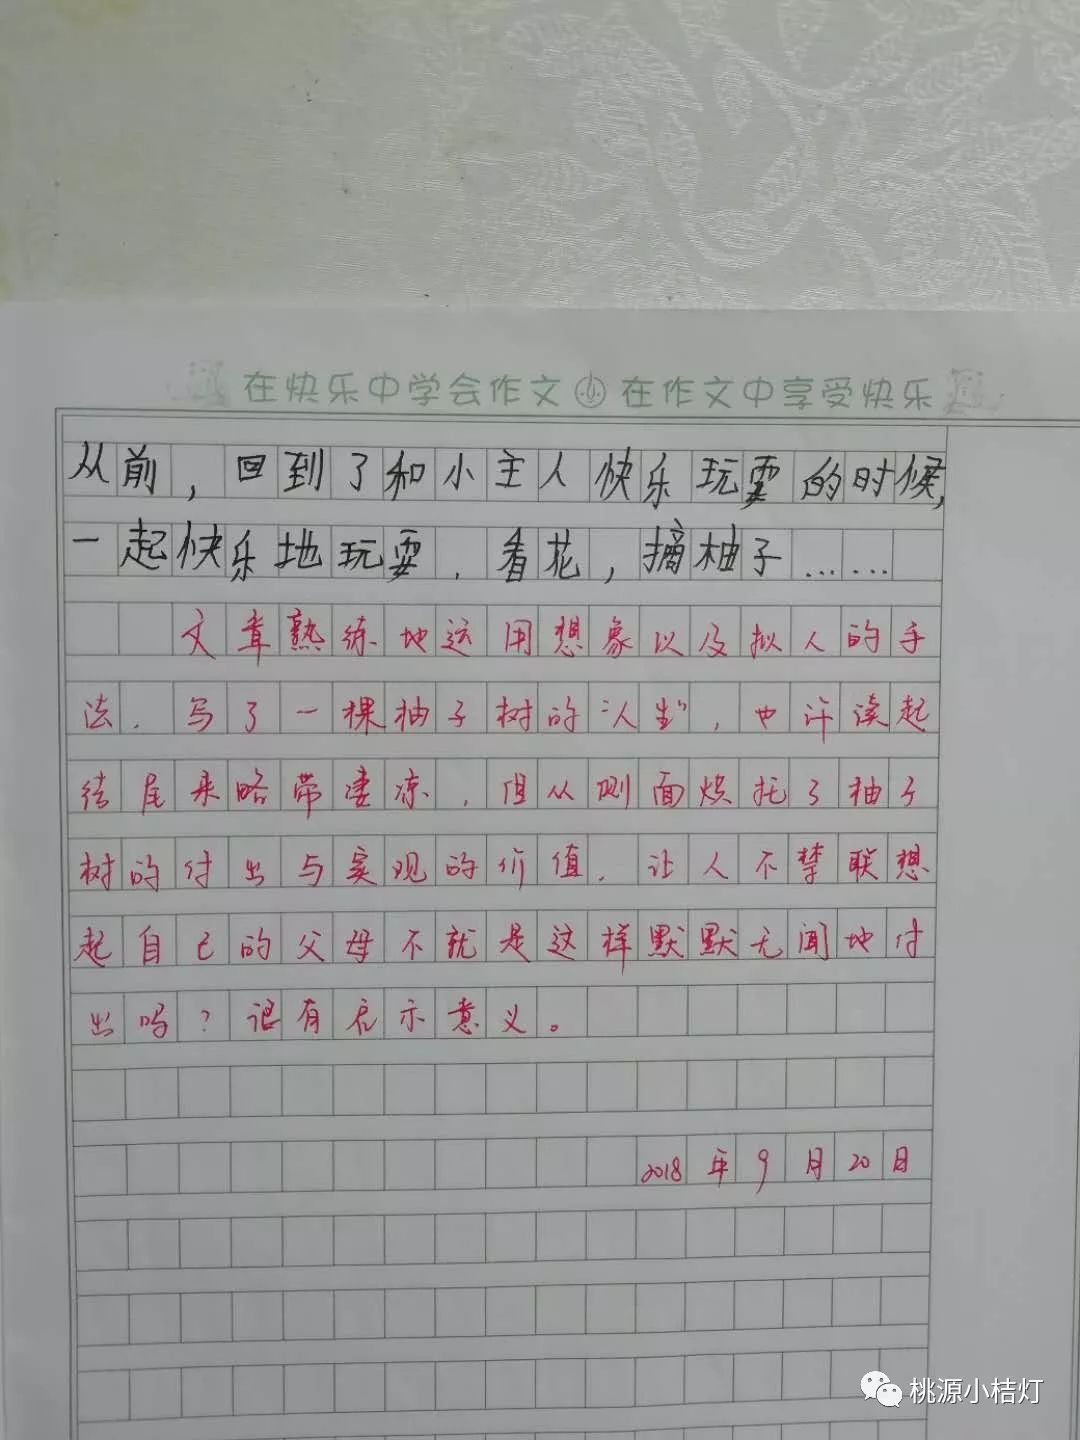 在快乐中学会作文 在作文中享受快乐
从前，回到了和小主人快乐玩耍的时候，
一起快乐地玩耍，看花，摘柚子……
文章熟练地运用想象以及拟人的手
法，写了一棵柚子树的“人生”，也许读起
结尾来略带凄凉，但从侧面烘托了柚子
树的付出与实现的价值，让人不禁联想
起自己的父母不就是这样默默无闻地付
出吗？很有启示意义。
2018年9月20日
桃源小桔灯